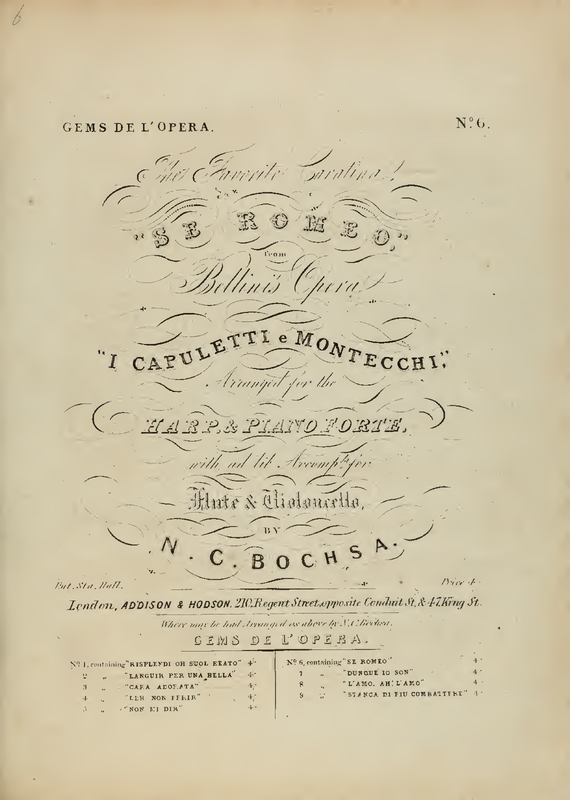 6
GEMS DE L'OPERA.
No. 6.
The Favorite Cavatina
"SE ROMEO,"
from
Bellini's Opera
"I CAPULETTI e MONTECCHI,"
Arranged for the
HARP, & PIANO FORTE,
with ad lib Accompts. for
Flute & Violoncello,
BY
N. C. BOCHSA.
Ent. Sta. Hall.
Price 4
London, ADDISON & HODSON, 210, Regent Street, opposite Conduit St. & 47, King St.
Where may be had Arranged as above by N. C. Bochsa.
GEMS DE L'OPERA.
No. 1, containing "RISPLENDI OH SUOL BEATO" 4
2 " "LANGUIR PER UNA BELLA" 4
3 " "CARA ADORATA" 4
4 " 4
5 " "NON MI DIR" 4
No. 6, containing "SE ROMEO" 4
7 " "DUNQUE IO SON" 4
8 " "L'AMO. AH! L'AMO" 4
9 " "STANCA DI PIU COMBATTERE" 4